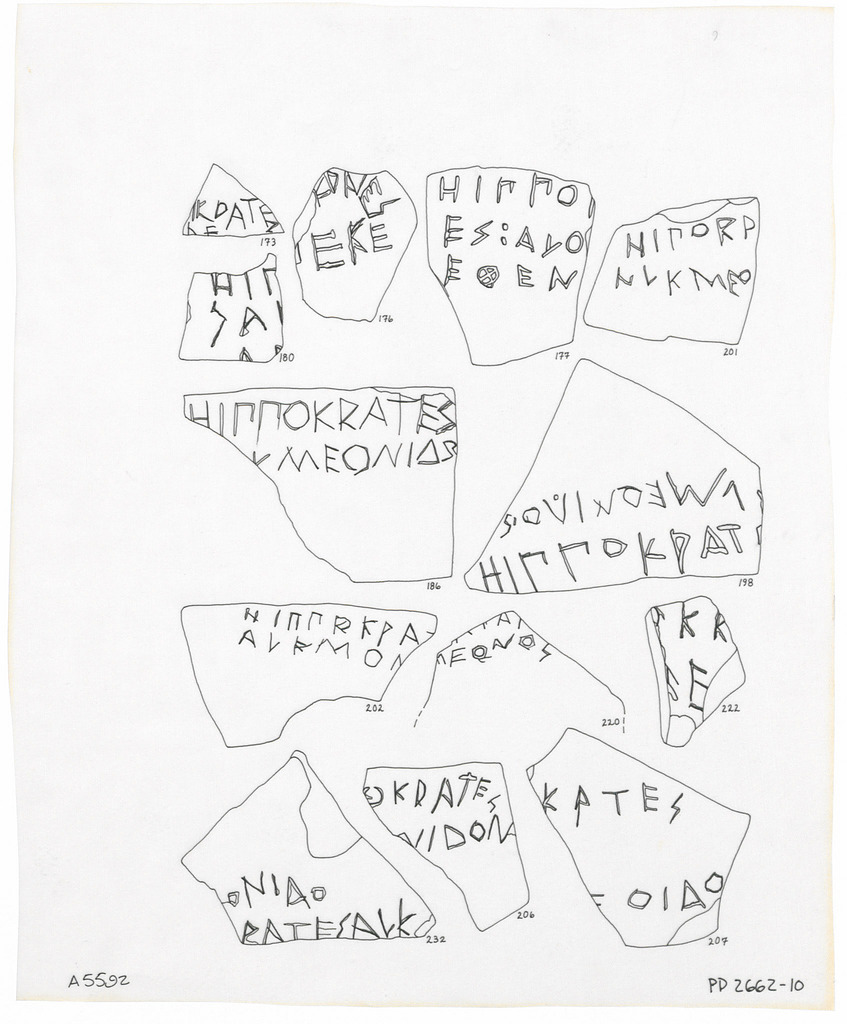 ΚΡΑΤΕΣ
173
ΕΚΕ
176
ΗΙΠΠΟ
ΕΣ:ΑΛΟ
ΕΘΕΝ
177
ΗΙΠ
ΣΑ
180
ΗΙΠΟΚΡ
ΝΛΚΜΕΟ
201
ΗΙΠΠΟΚΡΑΤΕΣ
ΚΜΕΟΝΙΔΟΣ
186
ΛΜΕΟΝΙΔΟΣ
ΗΙΠΠΟΚΡΑΤ
198
ΗΙΠΠΟΚΡΑ
ΑΛΚΜΟΝ
202
ΜΕΟΝΟΣ
220
ΚΡ
222
ΟΝΙΔΟ
ΡΑΤΕΣΑΛΚ
232
ΟΚΡΑΤΕΣ
ΝΙΔΟΝ
206
ΚΡΤΕΣ
ΟΙΔΟ
207
A5592
PD 2662-10